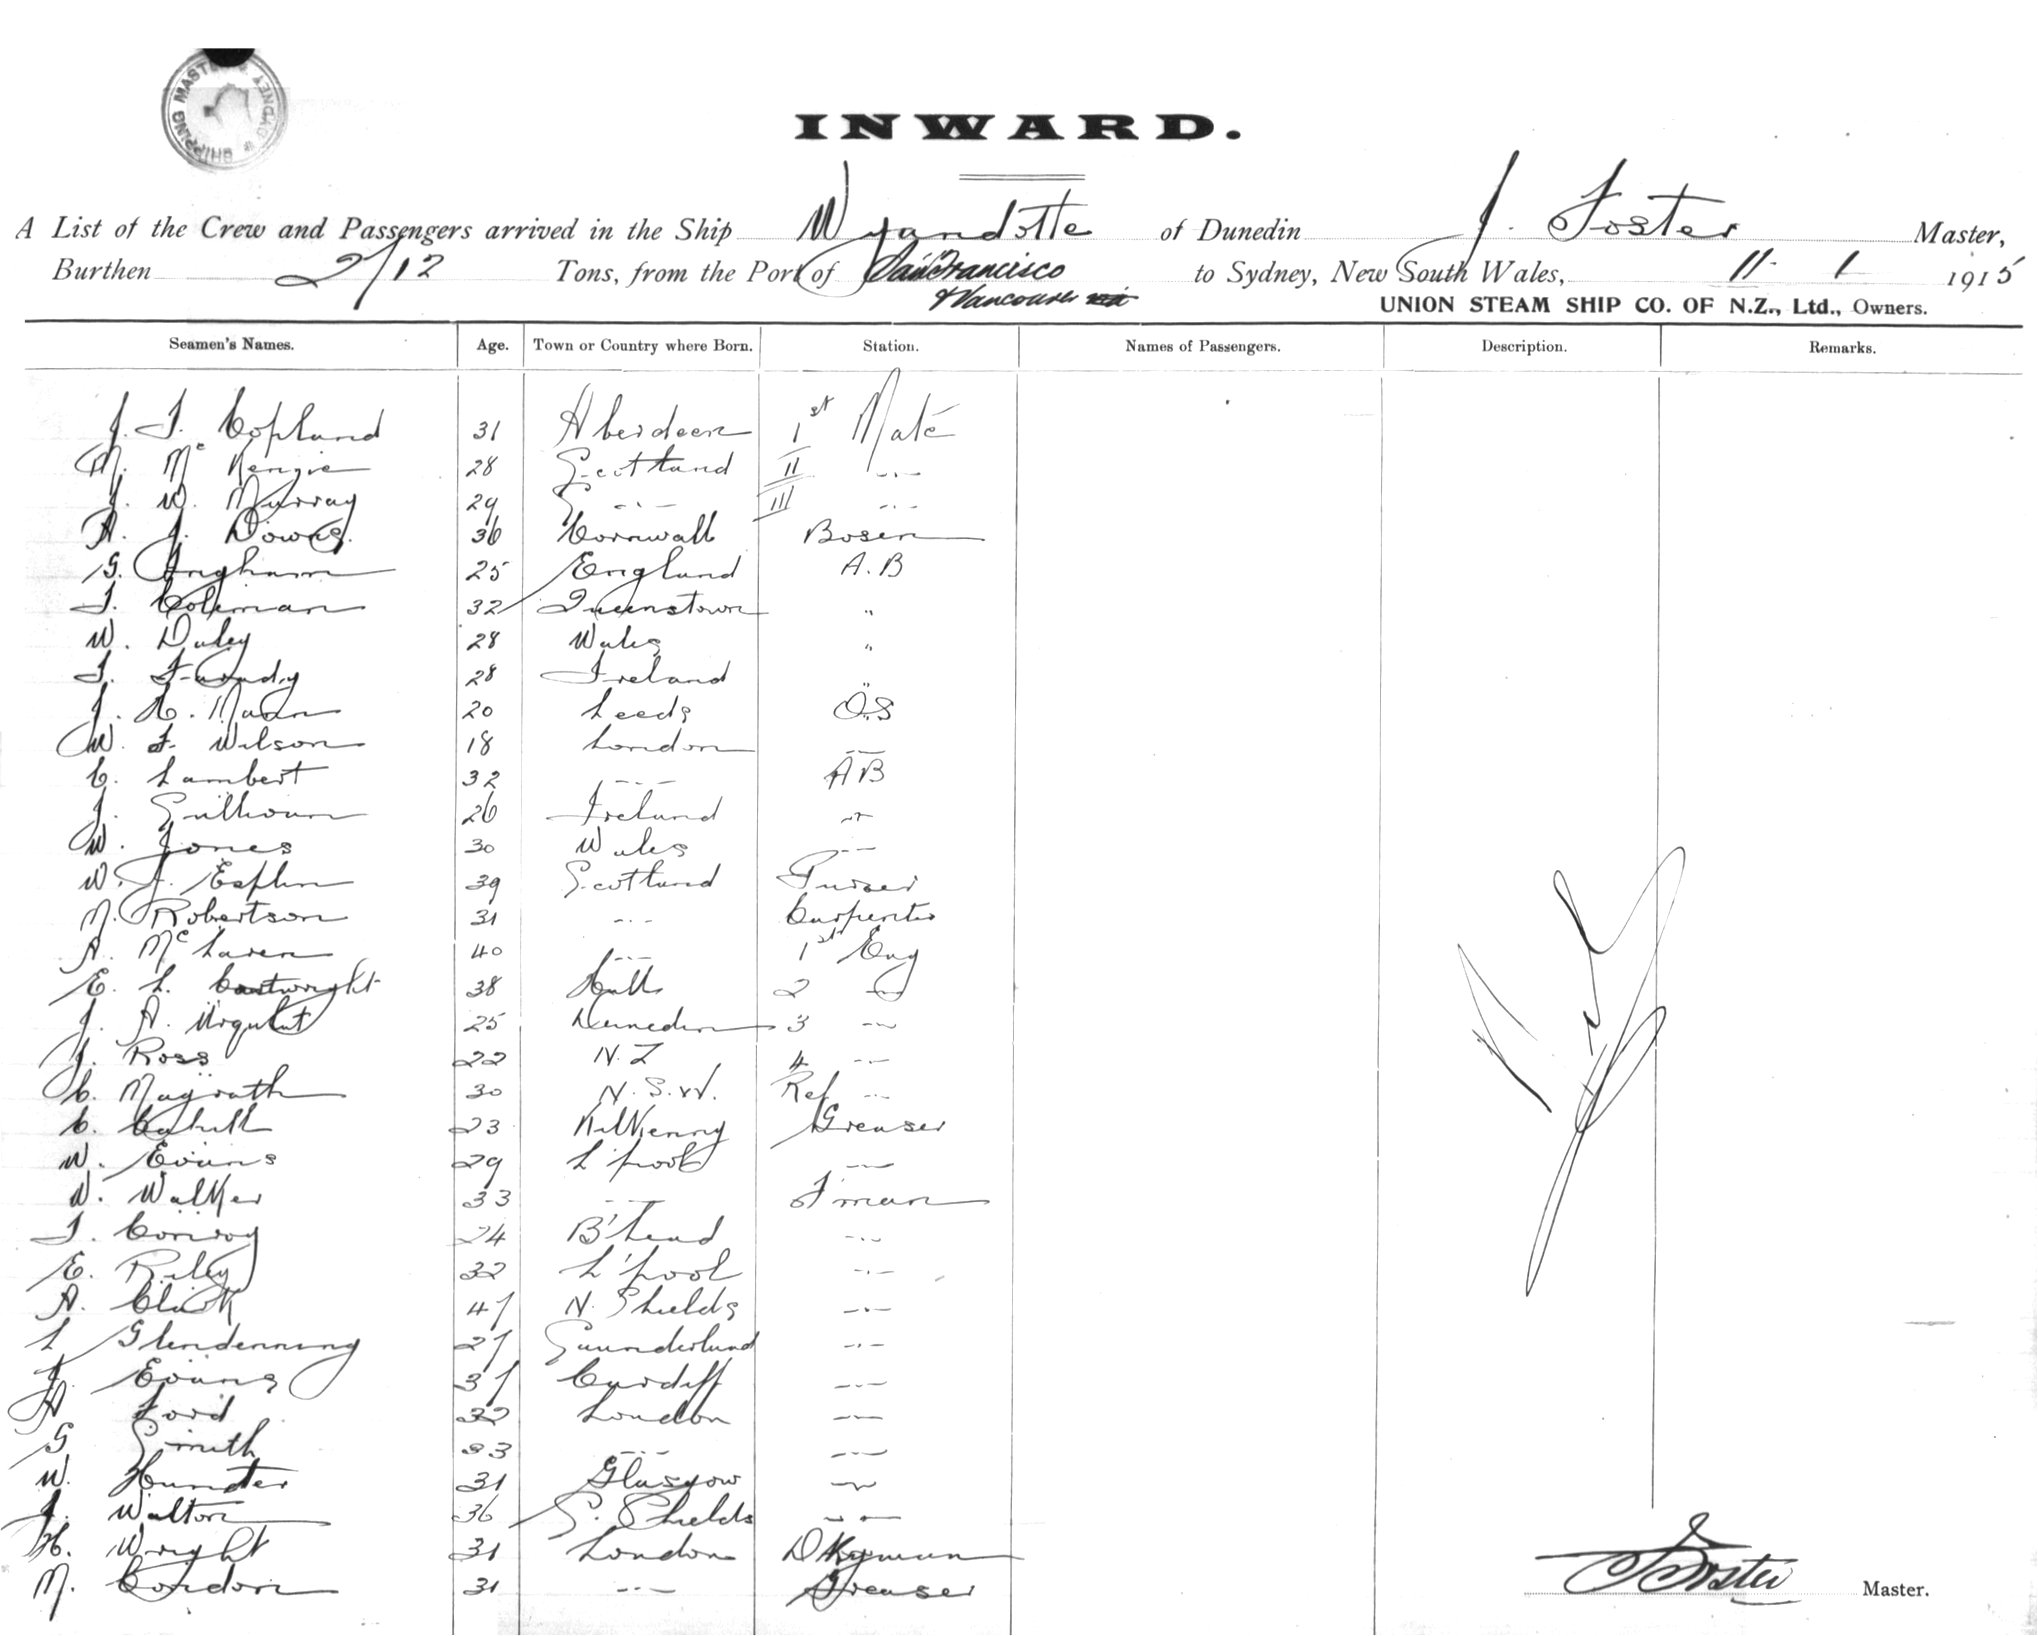 SHIPPING MASTER SYDNEY
INWARD.
A List of the Crew and Passengers arrived in the Ship Wyandotte of Dunedin J. Foster Master,
Burthen 2712 Tons, from the Port of San Francisco to Sydney, New South Wales, 11 - 1 1915
& Vancouver
UNION STEAM SHIP CO. OF N.Z., Ltd., Owners.
Seamen's Names. Age. Town or Country where Born. Station. Names of Passengers. Description. Remarks.
J. J. Copland 31 Aberdeen 1st Mate
M. McKenzie 28 Scotland II -.-
J. W. Murray 29 S -.- III -.-
A. J. Downs. 36 Cornwall Bosen
G. Ingham 25 England A.B
T. Coleman 32 Queenstown "
W. Daley 28 Wales "
T. 28 Ireland "
J. H. Mann 20 Leeds O.S
W. F. Wilson 18 London -.-
C. Lambert 32 -.- AB
J. 26 Ireland -.-
W. Jones 30 Wales -.-
W. J. Esplin 39 Scotland Purser
N. Robertson 31 -.- Carpenter
A. McLaren 40 -.- 1st Eng
E. L. Cartwright 38 Hull 2 -.-
J. A. Urquhart 25 Dunedin 3 -.-
J. Ross 22 N.Z 4 -.-
C. Magrath 30 N.S.W. Ref -.-
C. Cahill 23 Kilkenny Greaser
W. Evans 29 L'pool -.-
W. Walker 33 -.- F'man
T. Conroy 24 B'head -.-
E. Riley 32 L'pool -.-
A. Clark 47 N. Shields -.-
L Glendenning 27 Saunderland -.-
J. Evans 37 Cardiff -.-
A Ford 32 London -.-
G Smith 33 -.- -.-
W. Hunter 31 Glasgow -.-
J. Walton 36 S. Shields -.-
H. Wright 31 London DKyman
M. Condon 31 -.- Greaser
J Foster Master.